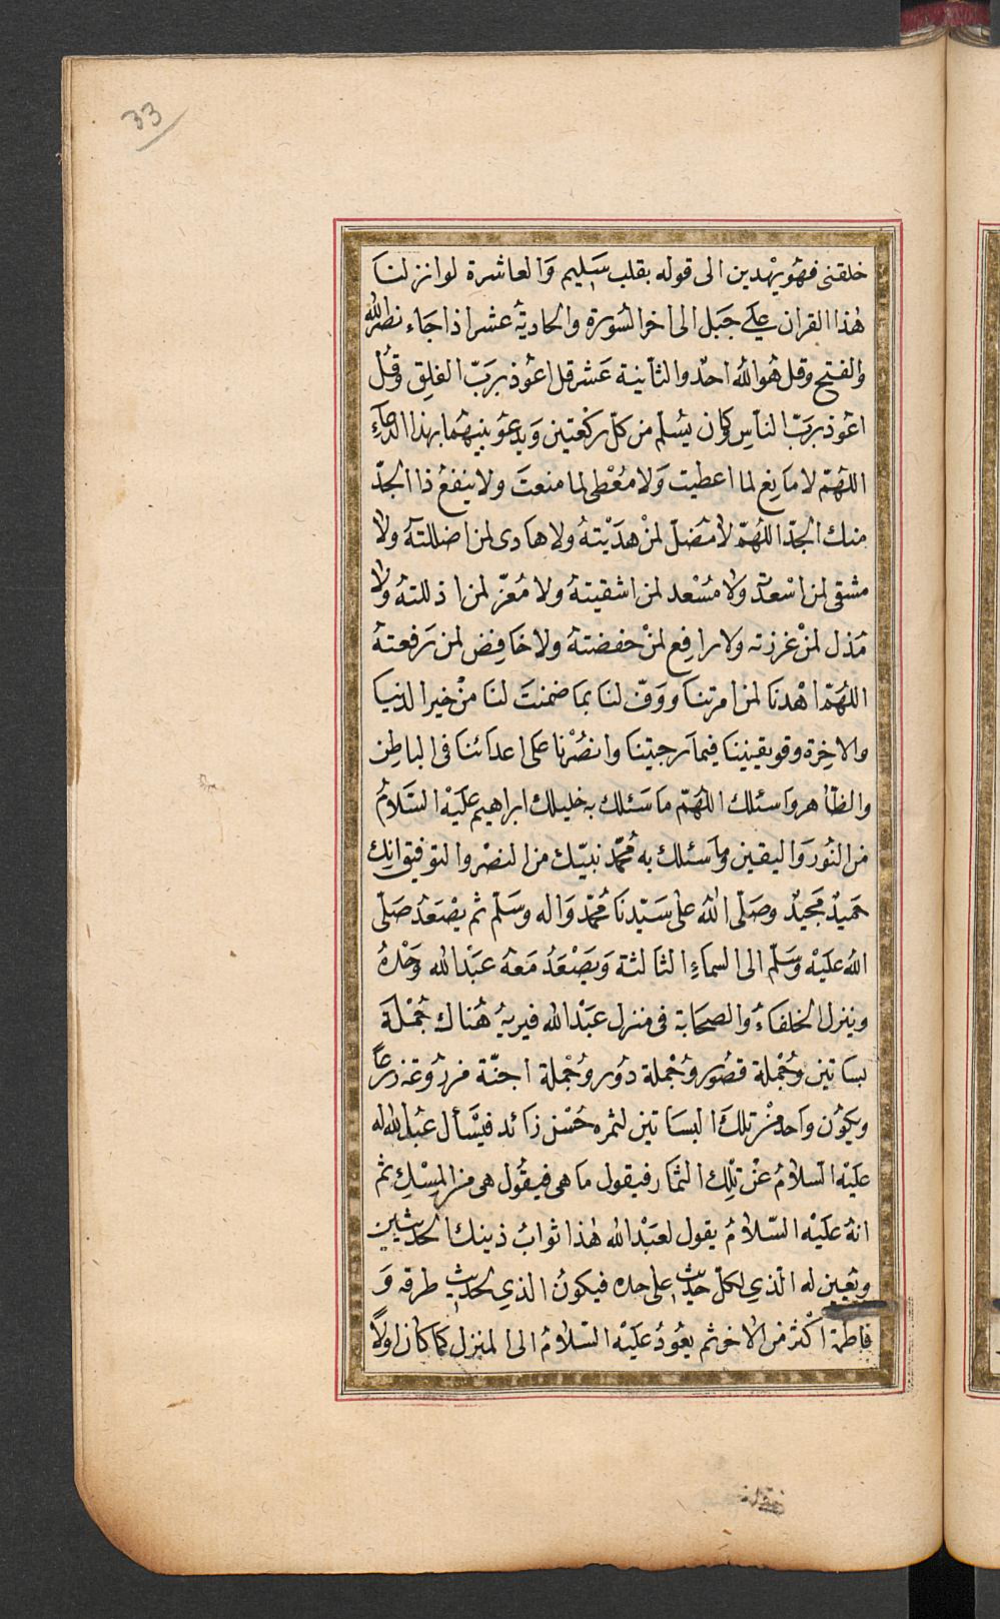 33
خلقنى فهو يهدين الى قوله بقلب سليم والعاشرة لو انزلنا
هٰذا القران على جبل الى اخر السورة والحادية عشر اذا جاء نصر الله
والفتح وقل هو الله احد والثانية عشر قل اعوذ برب الفلق وقل
اعوذ برب الناس كان يسلم من كل ركعتين ويدعو بينهما بهذا الدعاء
اللهم لا مانع لما اعطيت ولا معطى لما منعت ولا ينفع ذا الجد
منك الجد اللهم لا مضل لمن هديته ولا هادى لمن اضللته ولا
مشقى لمن اسعدته ولا مسعد لمن اشقيته ولا معز لمن اذللته ولا
مذل لمن عززته ولا رافع لمن خفضته ولا خافض لمن رفعته
اللهم اهدنا لمن امرتنا ووف لنا بما ضمنت لنا من خير الدنيا
والاخرة وقو يقيننا فيما رجيتنا وانصرنا على اعدائنا فى الباطن
والظاهر واسئلك اللهم ما سئلك به خليلك ابراهيم عليه السلام
من النور واليقين وما سئلك به محمد نبيك من النصر والتوفيق انك
حميد مجيد وصلى الله على سيدنا محمد واله وسلم ثم يصعد صلى
الله عليه وسلم الى السماء الثالثة ويصعد معه عبد الله وحده
وينزل الخلفاء والصحابة فى منزل عبد الله فيريه هناك جملة
بساتين وجملة قصور وجملة دور وجملة اجنة
ويكون واحد من تلك البساتين لثمره حسن زائد فيسأل عبد الله له
عليه السلام عن تلك الثمار فيقول ما هى فيقول هى من المسك ثم
انه عليه السلام يقول لعبد الله هٰذا ثواب ذينك الحديثين
ويعين له الذي لكل حديث على حده فيكون الذي لحديث طرقه و
فاطمة اكثر من الاخر ثم يعود عليه السلام الى المنزل كما كان اولاً